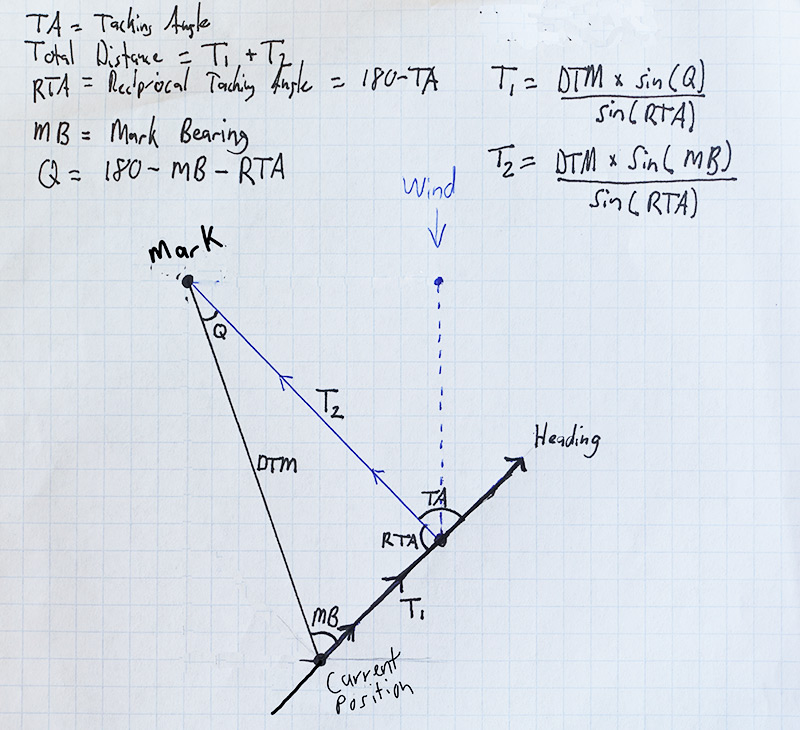 TA = Tacking Angle
Total Distance = T1 + T2
RTA = Reciprocal Tacking Angle = 180-TA
MB = Mark Bearing
Q = 180 - MB - RTA
T1 = DTM x sin(Q)
sin(RTA)
T2 = DTM x Sin(MB)
Sin(RTA)
Wind
Mark
Q
T2
Heading
DTM
TA
RTA
T1
MB
Current
Position